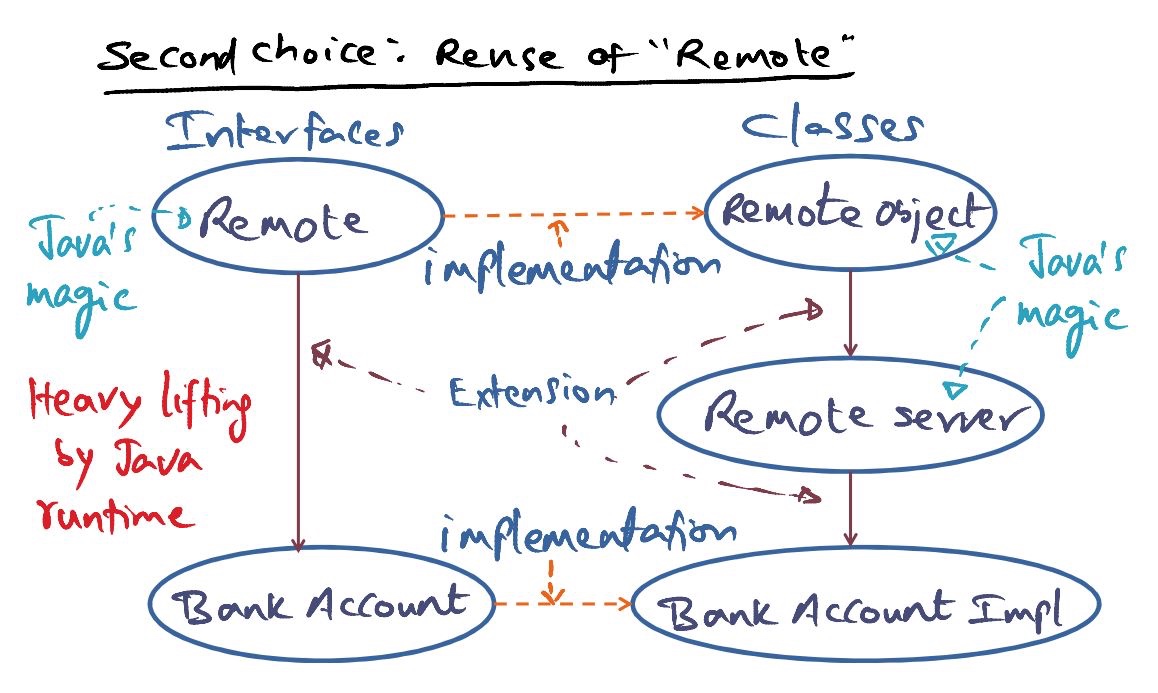 Second choice: Reuse of "Remote"
Interfaces
Classes
Remote
Remote object
Java's
magic
implementation
Java's
magic
Extension
Heavy lifting
by Java
runtime
Remote server
implementation
Bank Account
Bank Account Impl